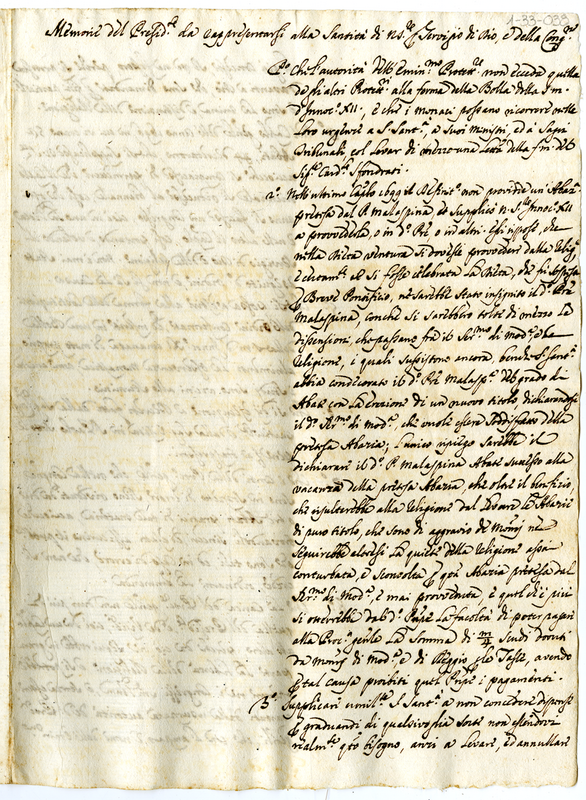 1-33-033
Memorie del Presid.te da rappresentarsi alla Santità di N.S.re p Servizio di Dio, e della Cong.ne
P.o Che l'autorità dell'Emin.mo Protett.re non ecceda quella
de gl'altri Protett.ri alla forma della Bolla della f.m.
d'Innoc.o XII, e che i monaci possano ricorrere nelle
loro urgenze a S. Sant.à, a suoi Ministri, ed à
Tribunali, col levar di mezzo una lett.a della f.m. del
Sig.r Card.l Sfondrati.
2.o Nell'ultimo Cap.lo 1699 il Definit.o non providde un' Abazia
pretesa dal P. Malaspina, et supplicò N.S.re Innoc.o XII
a provvederla, o in d.o P.re o in altri. Egli rispose, che
nella Dieta ventura si dovesse provvedere dalla Relig.e
e che se si fosse celebrata la Dieta, che fu sospesa
p Breve Pontificio, ne sarebbe stato insignito il d.o P.re
Malaspina, con che si sarebbero tolte di mezzo le
dissensioni, che passano frà il Ser.mo di Mod.a e la
Religione, i quali sussistono ancora, benche S. Sant.à
abbia condecorato il d.o P.re Malasp.a del grado di
Abate con la erezione di un nuovo titolo dichiarandosi
il d.o Ser.mo di Mod.a, che vuole essere soddisfatto della
pretesa Abazia; l'unico ripiego sarebbe il
dichiarare il d.o P. Malaspina Abate successo alla
vacanza della pretesa Abazia, che oltre il beneficio,
che risulterebbe alla Religione dal levare le Abazie
di puro titolo, che sono di aggravio de Mon.rj ne
seguirebbe altresì la quiete della Religione assai
conturbata, e sconvolta p q.ta Abazia pretesa dal
Ser.mo di Mod.a, e mai provveduta, e quel che è più
si otterrebbe dal d.o la facoltà di poter pagare
alla Proc.a gen.le la somma di scudi dovuti
da Mon.rj di Mod.a, e di Reggio p le Tasse, avendo
p tal causa proibiti quel i pagamenti.
3.o Supplicare umilm.te S. Sant.à a non concedere dispense
p graduandi di qualsivoglia sorte non essendovi
realm.te q.to bisogno, anzi a levare, ed annullare